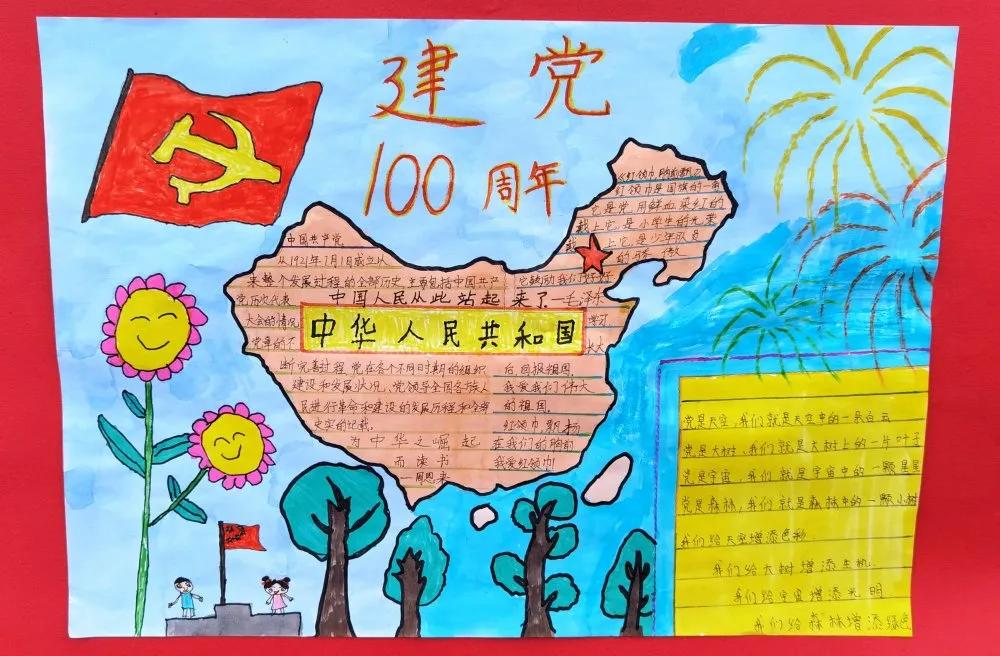 建党
100周年
中国共产党
从1921年7月1日成立以
来整个发展过程的全部历史 主要包括中国共产
党历次代表
大会的情况
党章的不
断完善过程 党在各个不同时期的组织
建设和发展状况，党领导全国各族人
民进行革命和建设的发展历程和全部
史实的记载。
中国人民从此站起来了—毛泽东
中华人民共和国
为中华之崛起
而读书
周恩来
《红领巾胸前飘》
红领巾是国旗的一角
它是党用鲜血染红的
戴上它是小学生的光荣
戴上它是少年队员
的骄傲
它鼓动我们好好
学习
长大
后回报祖国，
我爱我们伟大
的祖国。
红领巾飘扬
在我们的胸前
我爱红领巾！
党是天空，我们就是天空中的一朵白云
党是大树，我们就是大树上的一片叶子
党是宇宙，我们就是宇宙中的一颗星星
党是森林，我们就是森林中的一颗小树
我们给天空增添色彩
我们给大树增添生机
我们给宇宙增添光明
我们给森林增添绿色